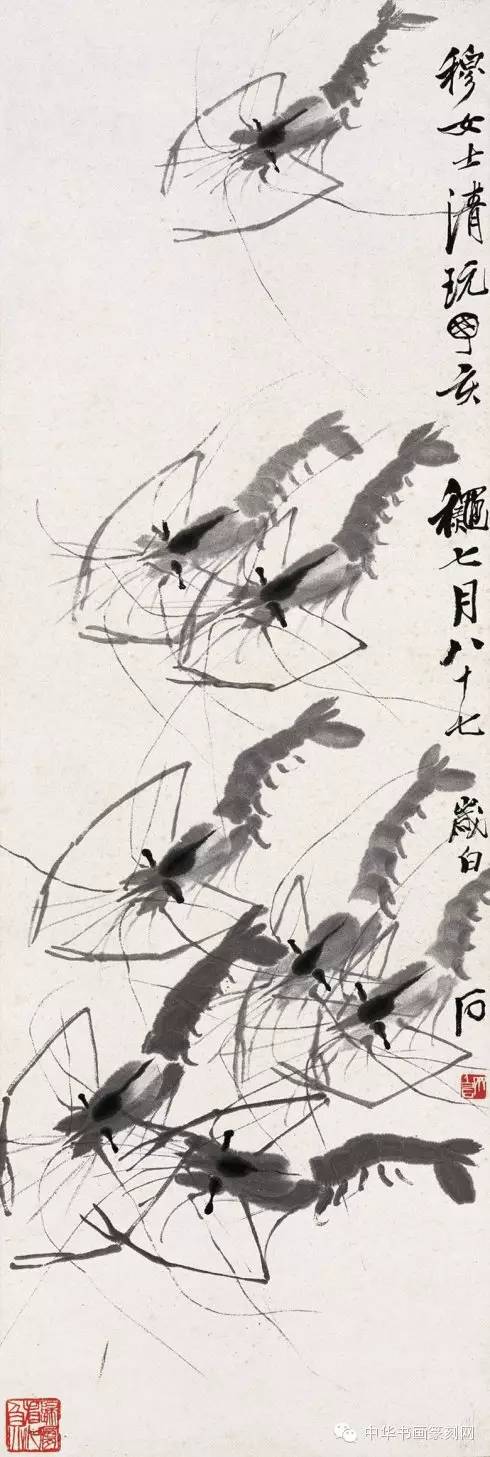 穆女士清玩亥龝七月八十七歲白石
中华书画篆刻网